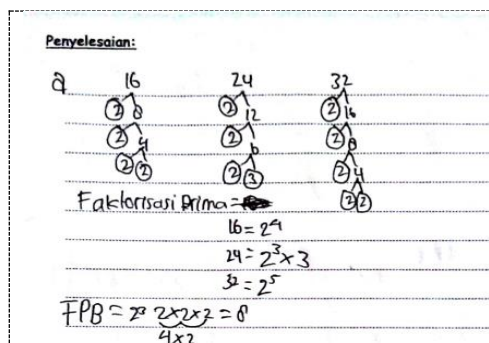 Penyelesaian:
a 16 24 32
2 8 2 12 2 16
2 4 2 6 2 8
2 2 2 3 2 4
2 2
Faktorisasi Prima =
16 = 2⁴
24 = 2³ × 3
32 = 2⁵
FPB = 2³ 2×2×2 = 8
4×2